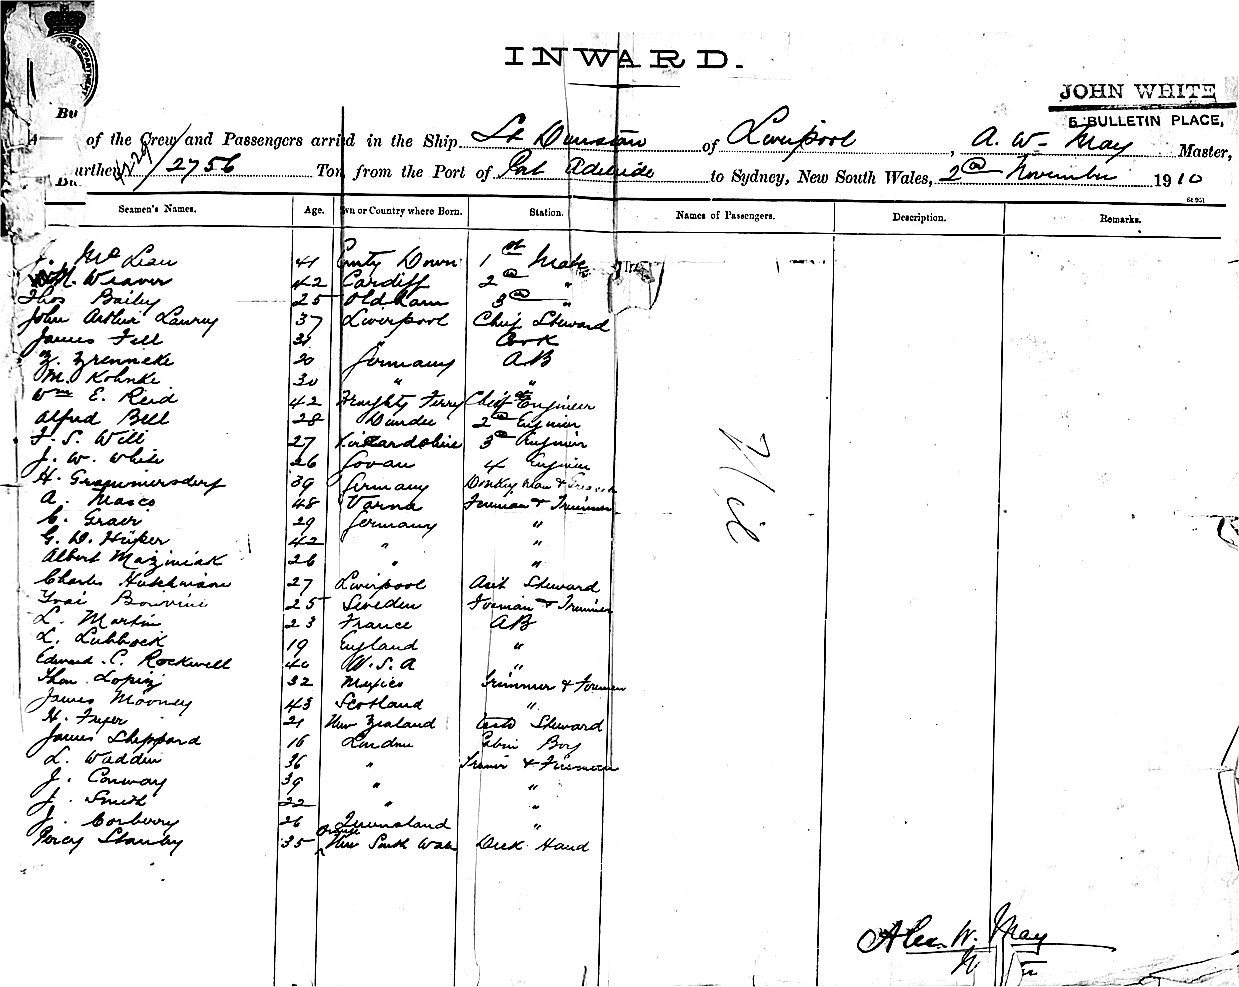 INWARD.
JOHN WHITE
5 BULLETIN PLACE,
of the Crew and Passengers arrived in the Ship St Dunstan of Liverpool, A. W. May Master,
Burthen 4229/2756 Tons from the Port of Port Adelaide to Sydney, New South Wales, 2nd November 1910
St 951
Seamen's Names. Age. Town or Country where Born. Station. Names of Passengers. Description. Remarks.
J. McLean 41 County Down 1st Mate
Wm. Weaver 42 Cardiff 2nd "
Thos Bailey 25 Oldham 3rd "
John Arthur Lowry 37 Liverpool Chief Steward
James Fell " Cook
20 Germany AB
M. Kohnke 30 " "
Wm E. Reid 42 Ferry Chief Engineer
Alfred Bell 28 Dundee 2nd Enginier
F. S. Will 27 Kincardshire 3rd Enginier
J. W. White 26 Govan 4 Enginier
H. Grammersdorf 39 Germany Donkeyman &
A. Masco 48 Varna Fireman & Trimmer
C. Graer 29 Germany "
G. W. 42 " "
Albert Maziniak 26 " "
Charles Hutchinson 27 Liverpool Asst Steward
25 Sweden Fireman & Trimmer
L. Martin 23 France AB
L. Lubbock 19 England "
Edward C. Rockwell 40 U.S.A "
Thom. Lopez 32 Mexico Trimmer & Fireman
James Mooney 43 Scotland "
H. Fryer 21 New Zealand Steward
James Sheppard 16 London Cabin Boy
L. Wadden 36 " Trimmer & Fireman
J. Conway 39 " "
J. Smith 22 " "
J. Corberry 26 Queensland "
Percy Stanley 35 Orange New South Wales Deck Hand
Nil
Alex. W. May